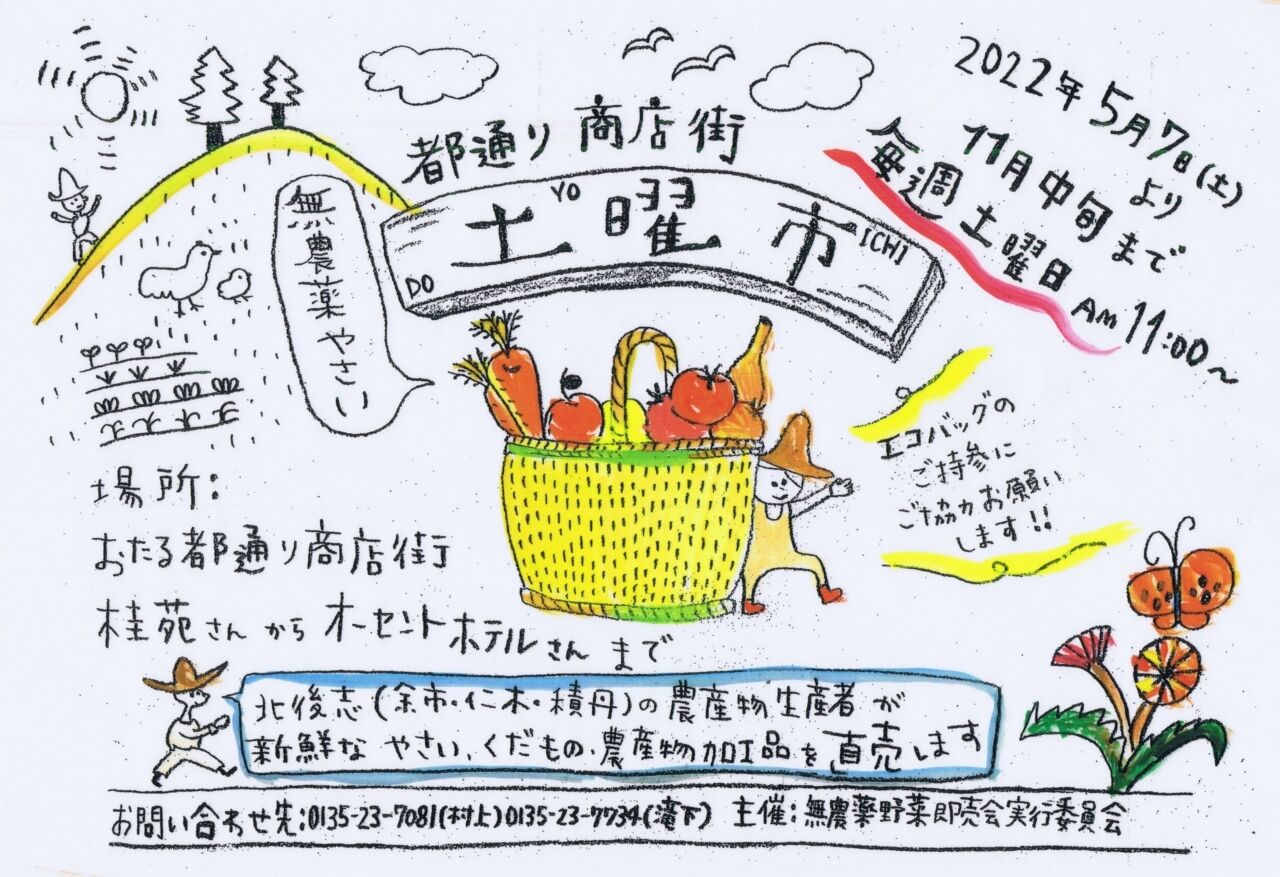 2022年5月7日(土)
より
11月中旬まで
毎週土曜日 AM 11:00～
都通り商店街
土曜市
DO YO ICHI
無農薬やさい
エコバッグの
ご持参に
ご協力お願い
します!!
場所:
おたる都通り商店街
桂苑さんからオーセントホテルさんまで
北後志(余市・仁木・積丹)の農産物生産者が
新鮮なやさい、くだもの、農産物加工品を直売します
お問い合わせ先:0135-23-7081(村上)0135-23-7734(滝下) 主催:無農薬野菜即売会実行委員会